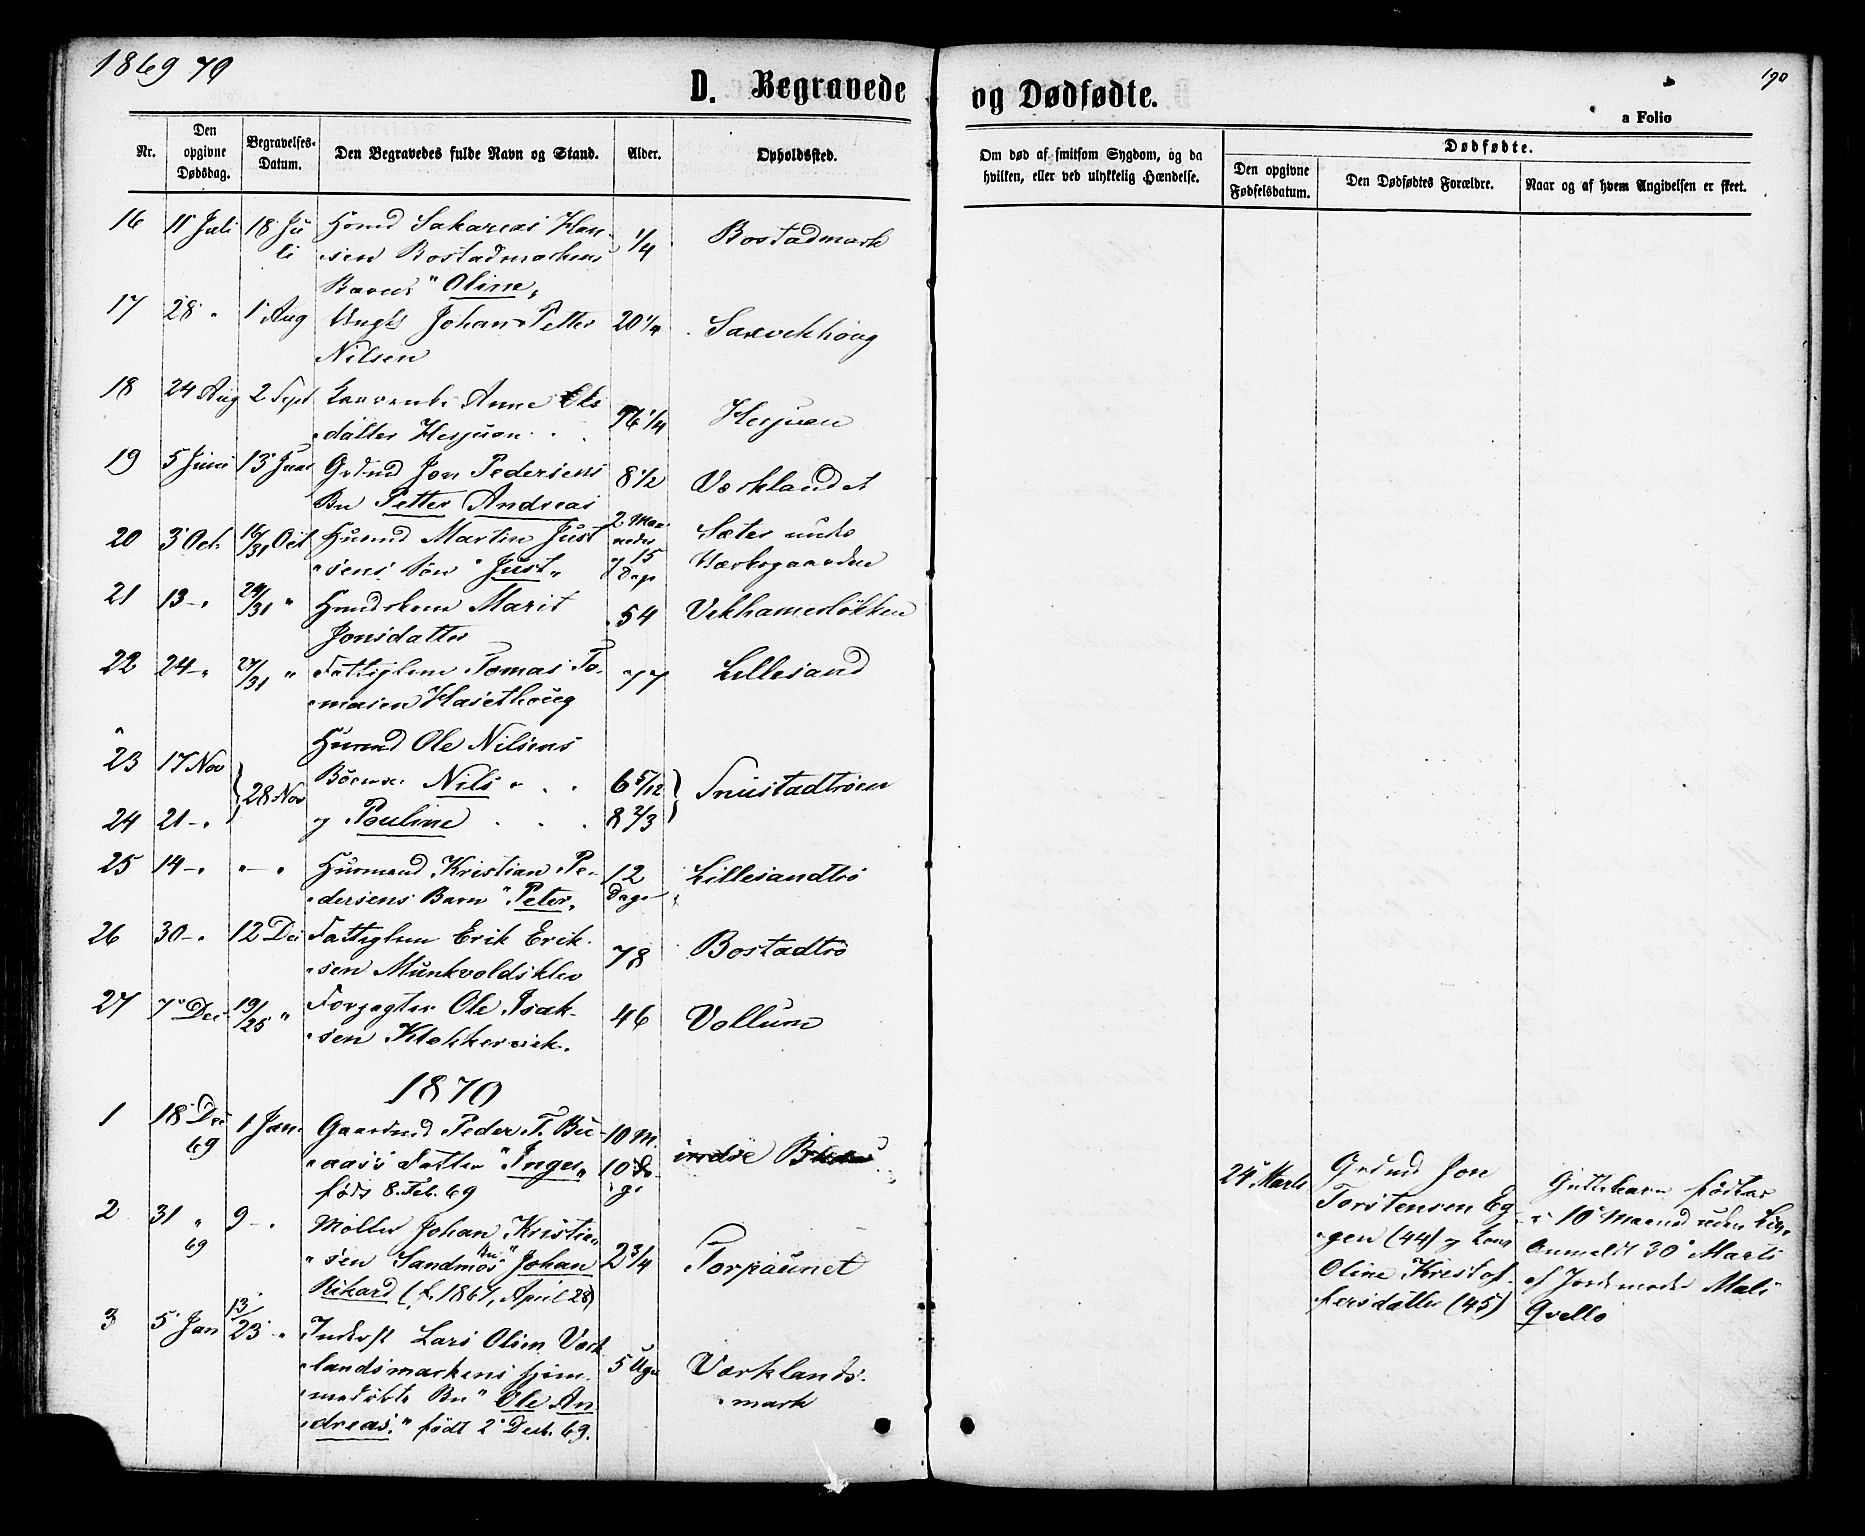 1869 70
190
D. Begravede og Dødfødte.
a Folio
Nr.
Den opgivne Dødsdag.
Begravelses-Datum.
Den Begravedes fulde Navn og Stand.
Alder.
Opholdssted.
Om død af smitsom Sygdom, og da
hvilken, eller ved ulykkelig Hændelse.
Dødfødte.
Den opgivne Fødselsdatum.
Den Dødfødtes Forældre.
Naar og af hvem Angivelsen er skeet.
16 11 Juli 18 Ju Husmd Sakarias Han 1/4 Bostadmark
li sen Bostadmarkens
Barn " Oline "
17 28 " 1 Aug Ungk Johan Petter 20 1/4 Saxvekhoug
Nilsen
18 24 Aug 2 Sept Anne 76 1/4 Hesjuen
datter Hesjuen
19 5 Juni 13 Jun Grdmd Jon Pedersens 8 1/2 Værklandet
Bn Petter Andreas
20 3 Oct 16/31 Oct Husmd Martin Just 2 Maaneder Sæter under
sens Søn " Just " 15 Dage
21 13 - " 24/31 " Husmdskone Marit 54 Vekhamerløkken
Jonsdatter
22 24 - " 27/31 " Fattiglem Tomas To 77 Lillesand
masen Hasethoug
Husmd Ole Nilsens
23 17 Nov } 28 Nov Børn Nils " 6 5/12 } Snustadtrøen
24 21 - " y Pauline 8 2/3
25 14 - " " - " Husmand Kristian Pe 12 Dage Lillesandtrø
dersens Barn " Peter "
26 30 - " 12 Dec Fattiglem Erik Erik 78 Bostadtrø
sen Munkvoldsklev
27 7 Dec 19/25 " Forpagter Ole Isak 46 Vollum
sen Klokkervik.
1870
1 18 Dec 69 1 Jan. Gaardmd Peder T. Bu 10 M. indre
aas's Datter " Inger " 10 Da
født 8. Feb. 69 ge
2 31 " 69 9 - " Møller Johan Kristian
sen Sandmo's Bn " Johan 2 3/4 Torpaunet
Rikard (f. 1867, April 28)
3 5 Jan 13/23 " Inderst Lars Olsen Værk
landsmarkens hjem 5 Uger Værklands
medøbte Bn " Ole An mark
dreas. " født 2 Decb. 69.
24 Marts
Grdmd Jon
Torstensen Eg
gen (44) y Kone
Oline Kristof
fersdatter (45)
Guttebarn fødtes
i 10 Maaned uden Liv.
Anmeldt 30 Marts
af Jordemoder Mali
Qvello